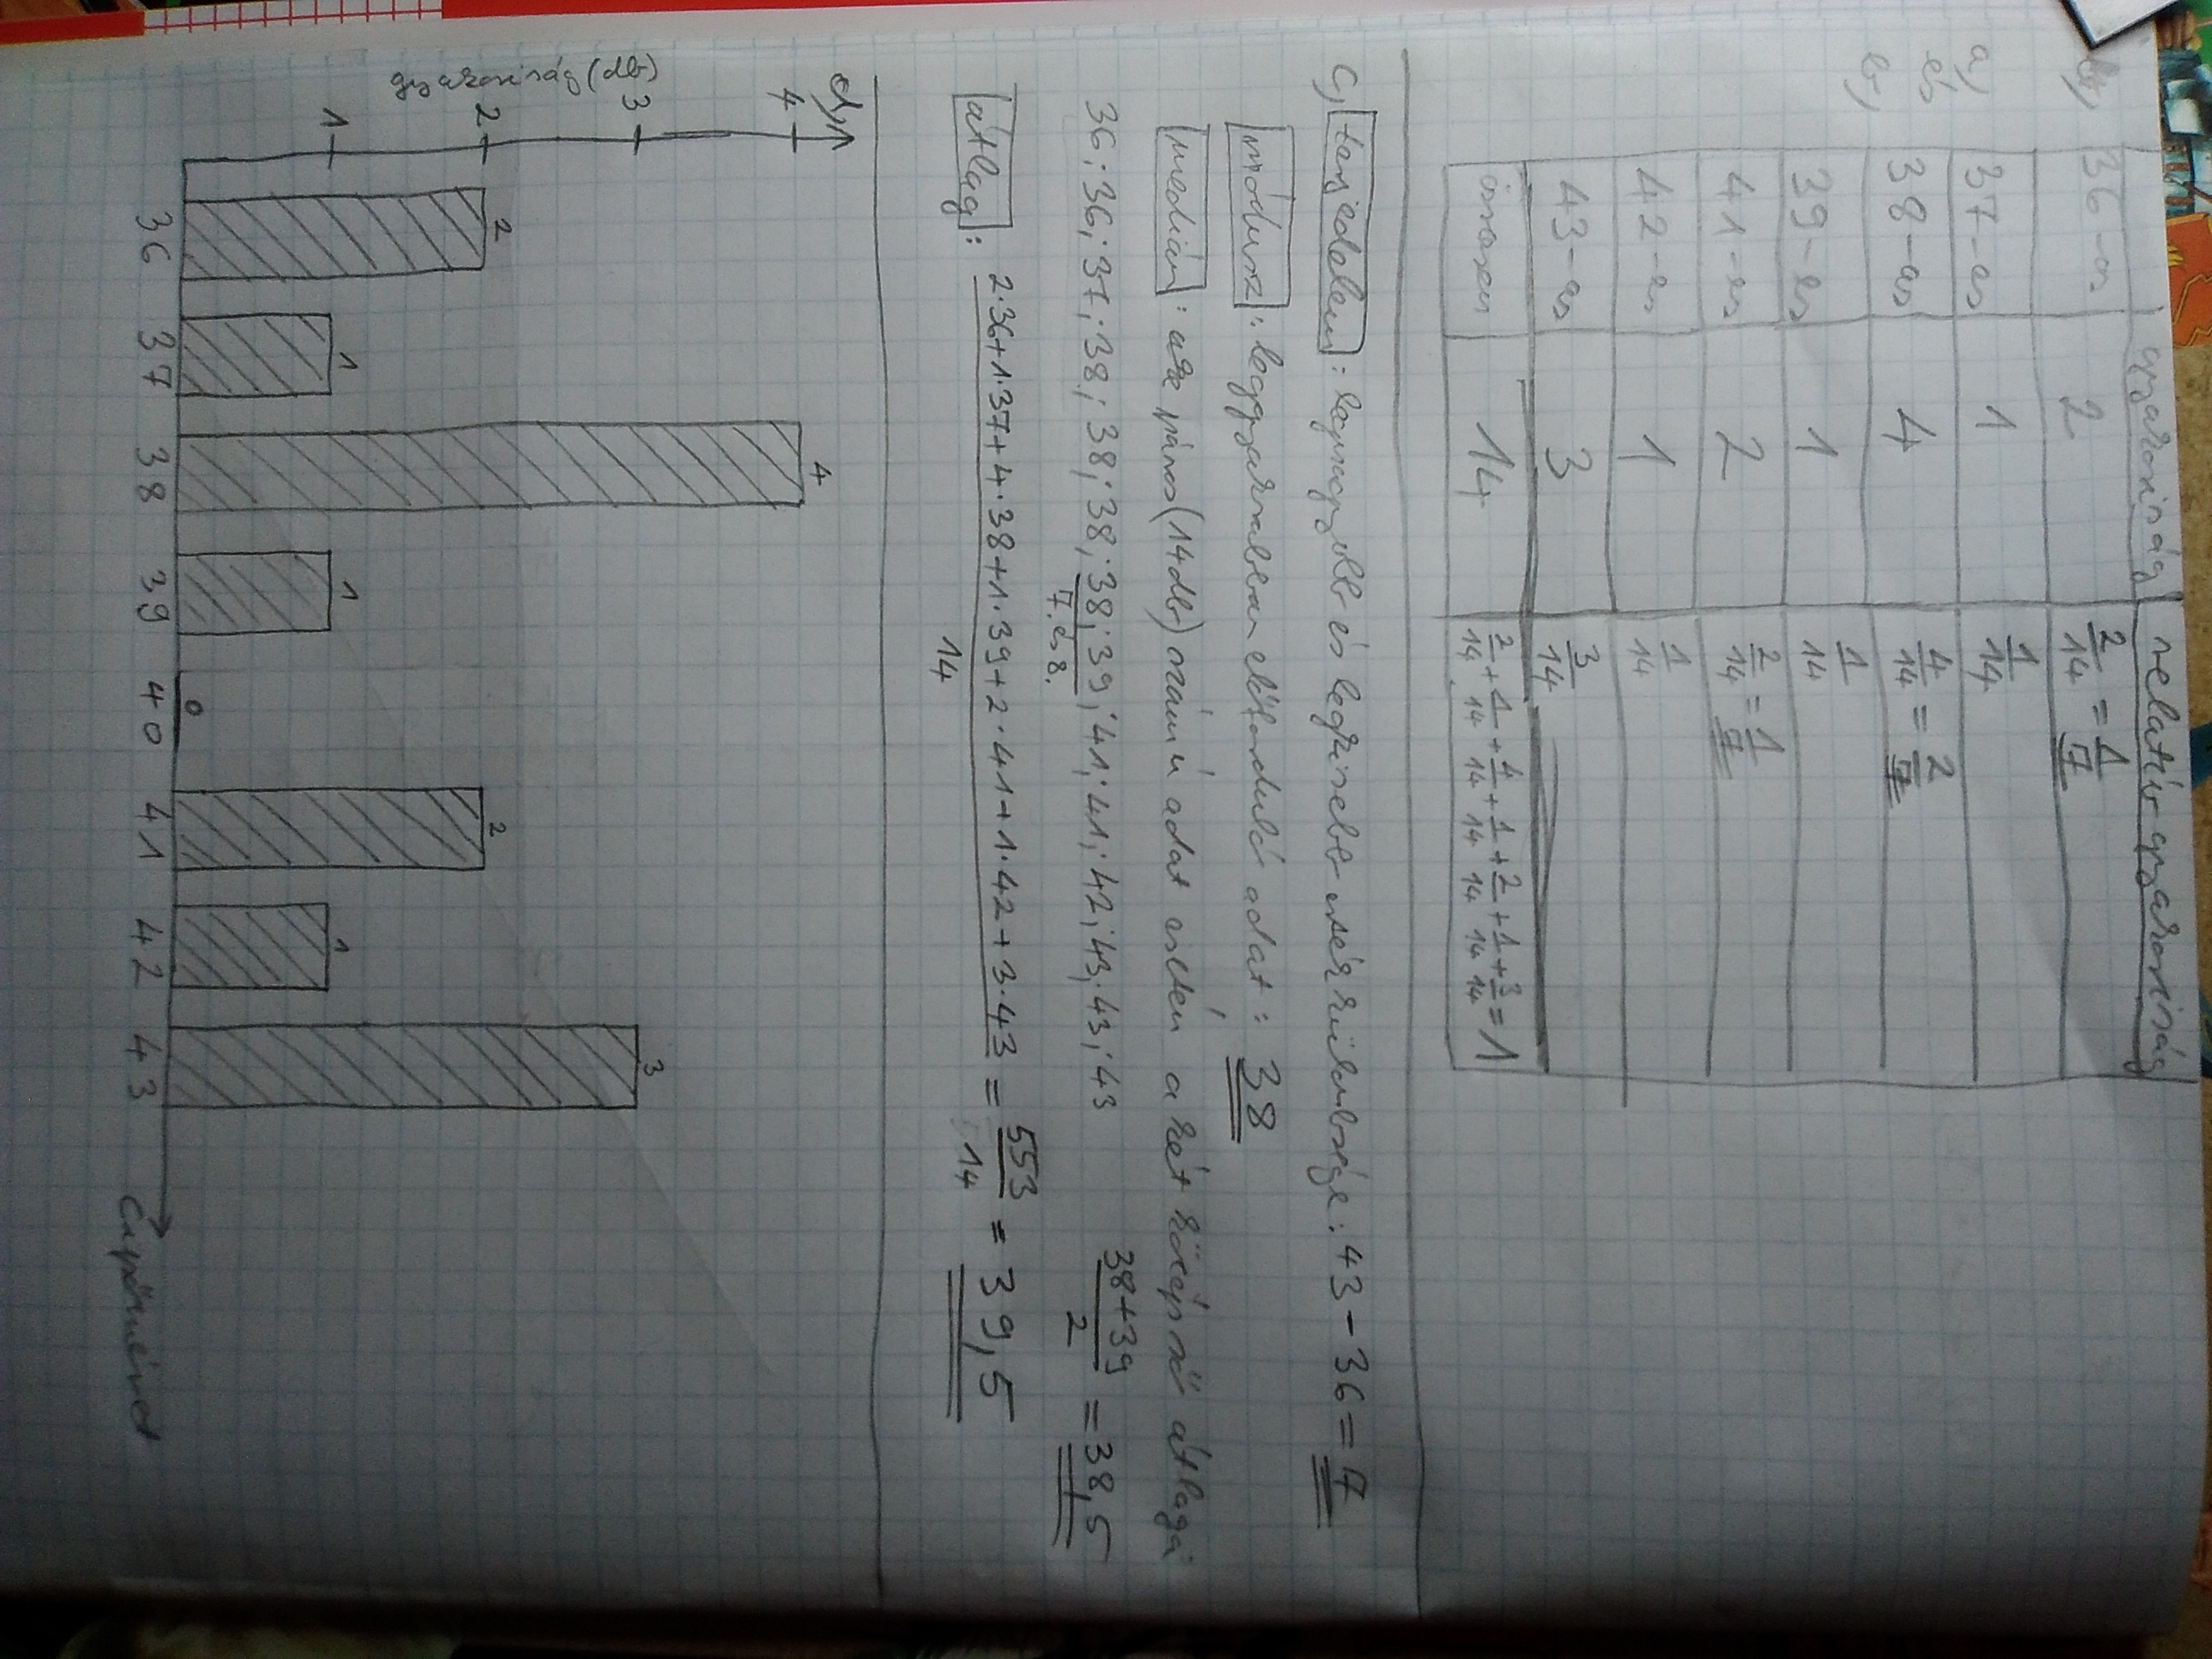 gyakoriság relatív gyakoriság
a, és b,
36-os 2 2/14 = 1/7
37-es 1 1/14
38-as 4 4/14 = 2/7
39-es 1 1/14
41-es 2 2/14 = 1/7
42-es 1 1/14
43-as 3 3/14
összesen 14 2/14 + 1/14 + 4/14 + 1/14 + 2/14 + 1/14 + 3/14 = 1
c, terjedelem: legnagyobb és legkisebb érték különbsége: 43 - 36 = 7
módusz: leggyakrabban előforduló adat: 38
medián: páros (14 db) számú adat esetén a két középső átlaga
36; 36; 37; 38; 38; 38; 38; 39; 41; 41; 42; 43; 43; 43 (38+39)/2 = 38,5
7. és 8.
átlag: (2·36+1·37+4·38+1·39+2·41+1·42+3·43)/14 = 553/14 = 39,5
d,
gyakoriság (db)
4
3
2
1
2 1 4 1 0 2 1 3
36 37 38 39 40 41 42 43
Cipőméret